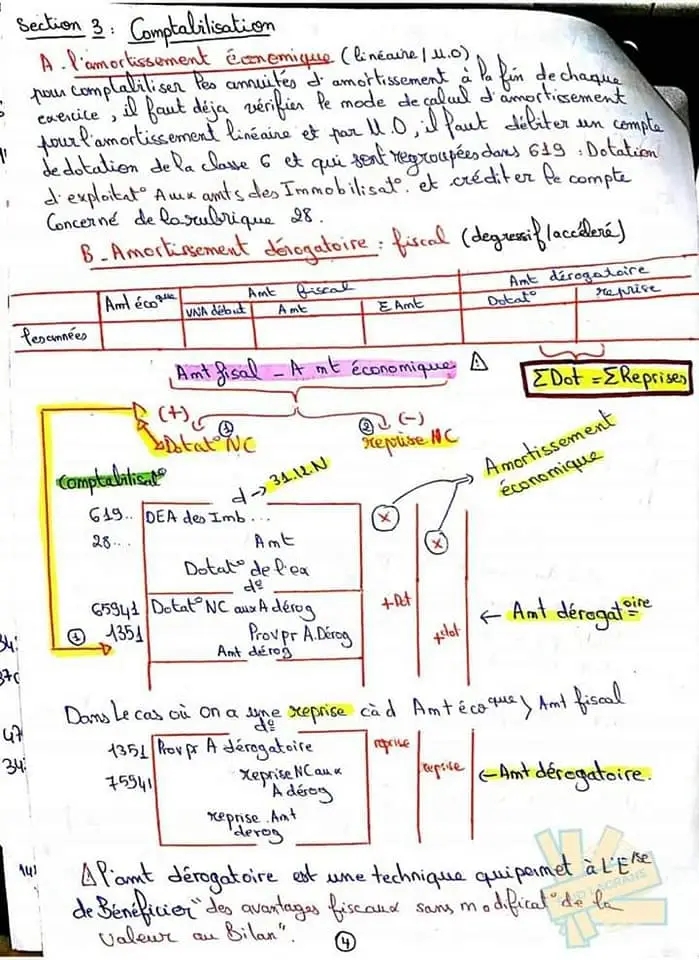 Section 3 : Comptabilisation
A. l'amortissement économique (linéaire / U.O)
pour comptabiliser les annuités d'amortissement à la fin de chaque
exercice, il faut déja vérifier le mode de calcul d'amortissement
pour l'amortissement linéaire et par U.O, il faut débiter un compte
de dotation de la classe 6 et qui sont regroupées dans 619 : Dotation
d'exploitat° Aux amts des Immobilisat°. et créditer le compte
Concerné de la rubrique 28.
B - Amortissement dérogatoire : fiscal (degressif/accéleré)
Amt éco que Amt fiscal Amt dérogatoire
VNA début Amt Σ Amt Dotat° reprise
les années
Amt fisal - Amt économique ⚠ ΣDot = ΣReprises
(+) ① ② (-)
Dotat° NC reprise NC
Amortissement
économique
Comptabilisat° d → 31.12.N
619.. DEA des Imb... x
28... Amt x
Dotat° de l'ex
d°
65941 Dotat° NC aux A dérog +Dot ← Amt dérogat oire
① 1351 Prov pr A.Dérog +dot
Amt dérog
Dans le cas où on a une reprise càd Amt éco que > Amt fiscal
d°
1351 Prov pr A dérogatoire reprise
75941 reprise NC aux reprise ← Amt dérogatoire.
A dérog
reprise. Amt
derog
⚠ l'amt dérogatoire est une technique qui permet à L'E/se
de Bénéficier "des avantages fiscaux sans modificat° de la
valeur au Bilan".
④
34
370
47
34
141